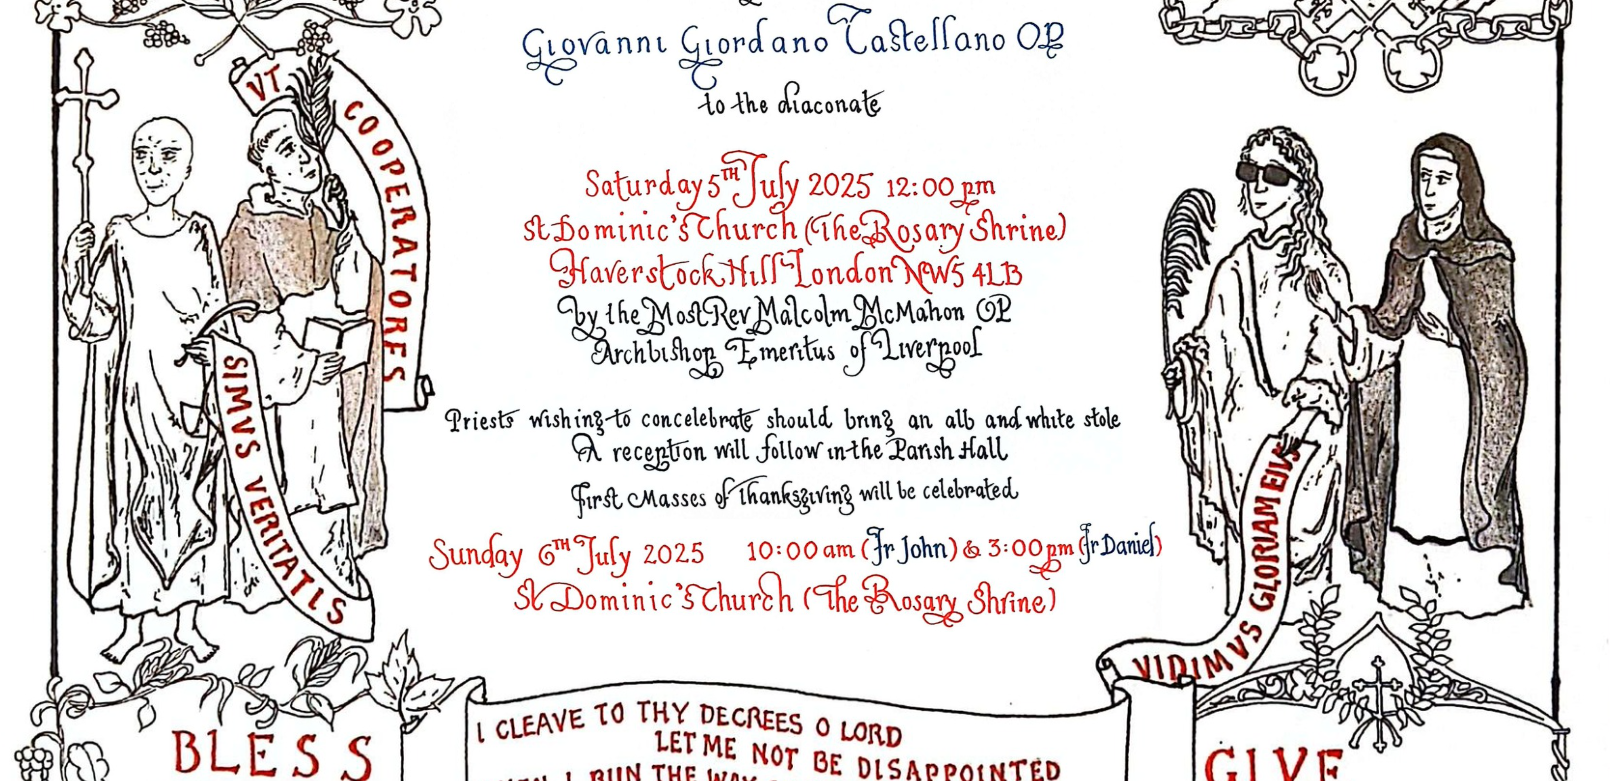 Giovanni Giordano Castellano OP
to the diaconate
Saturday 5TH July 2025 12:00 pm
St Dominic's Church (The Rosary Shrine)
Haverstock Hill London NW5 4LB
by the Most Rev Malcolm McMahon OP
Archbishop Emeritus of Liverpool
Priests wishing to concelebrate should bring an alb and white stole
A reception will follow in the Parish Hall
First Masses of Thanksgiving will be celebrated
Sunday 6TH July 2025 10:00 am (Fr John) & 3:00 pm (Fr Daniel)
St Dominic's Church (The Rosary Shrine)
VT COOPERATORES
SIMVS VERITATIS
VIDIMVS GLORIAM EIVS
I CLEAVE TO THY DECREES O LORD
LET ME NOT BE DISAPPOINTED
I RUN THE WAY
BLESS
GIVE